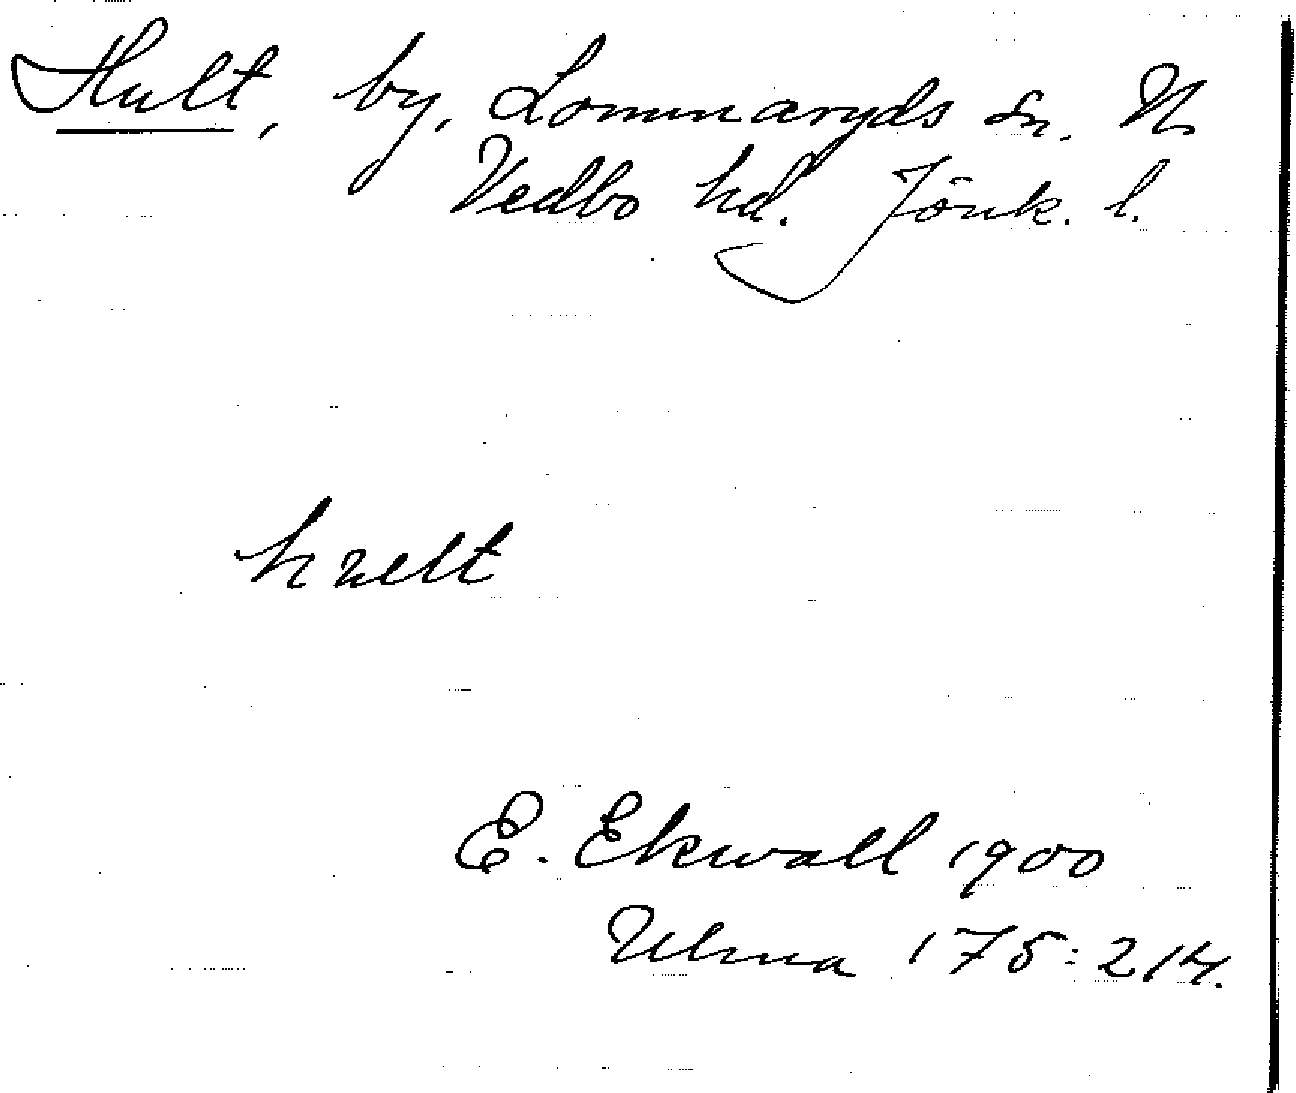 Hult, by, Lommaryds sn. N
Vedbo hd. Jönk. l.
E. Ekwall 1900
Ulma 175:214.